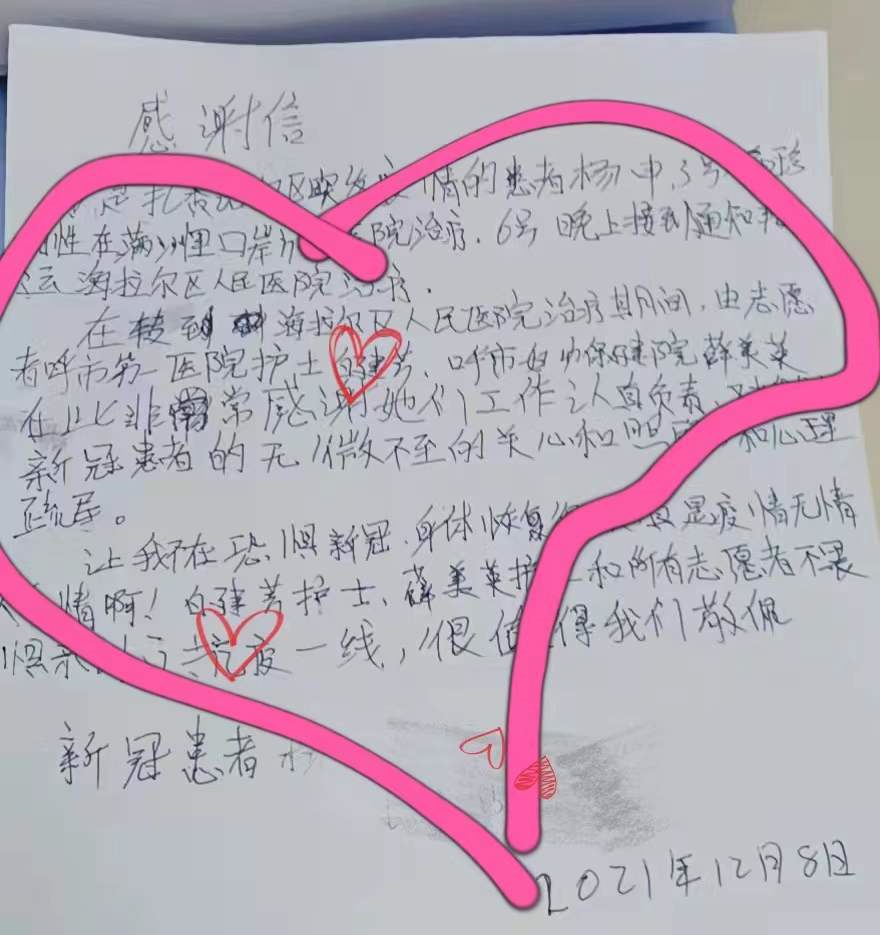 感谢信
是扎赉 区突发 情的患者杨 中,3号
性在满州里口岸 院治疗.6号晚上接到通知
运海拉尔区人民医院治疗.
在转到 海拉尔区人民医院治疗其月间,由志愿
者呼市第一医院护士白建芳、呼市妇幼保健院薛美英
在此非常感谢她们工作认真负责,
新冠患者的无微不至的关心和照 和心理
疏导。
让我不在恐惧新冠.身体恢复 是疫情无情
情啊!白建芳护士、薛美英护 和所有志愿者不畏
惧 疫一线,很值得我们敬佩
新冠患者
2021年12月8日